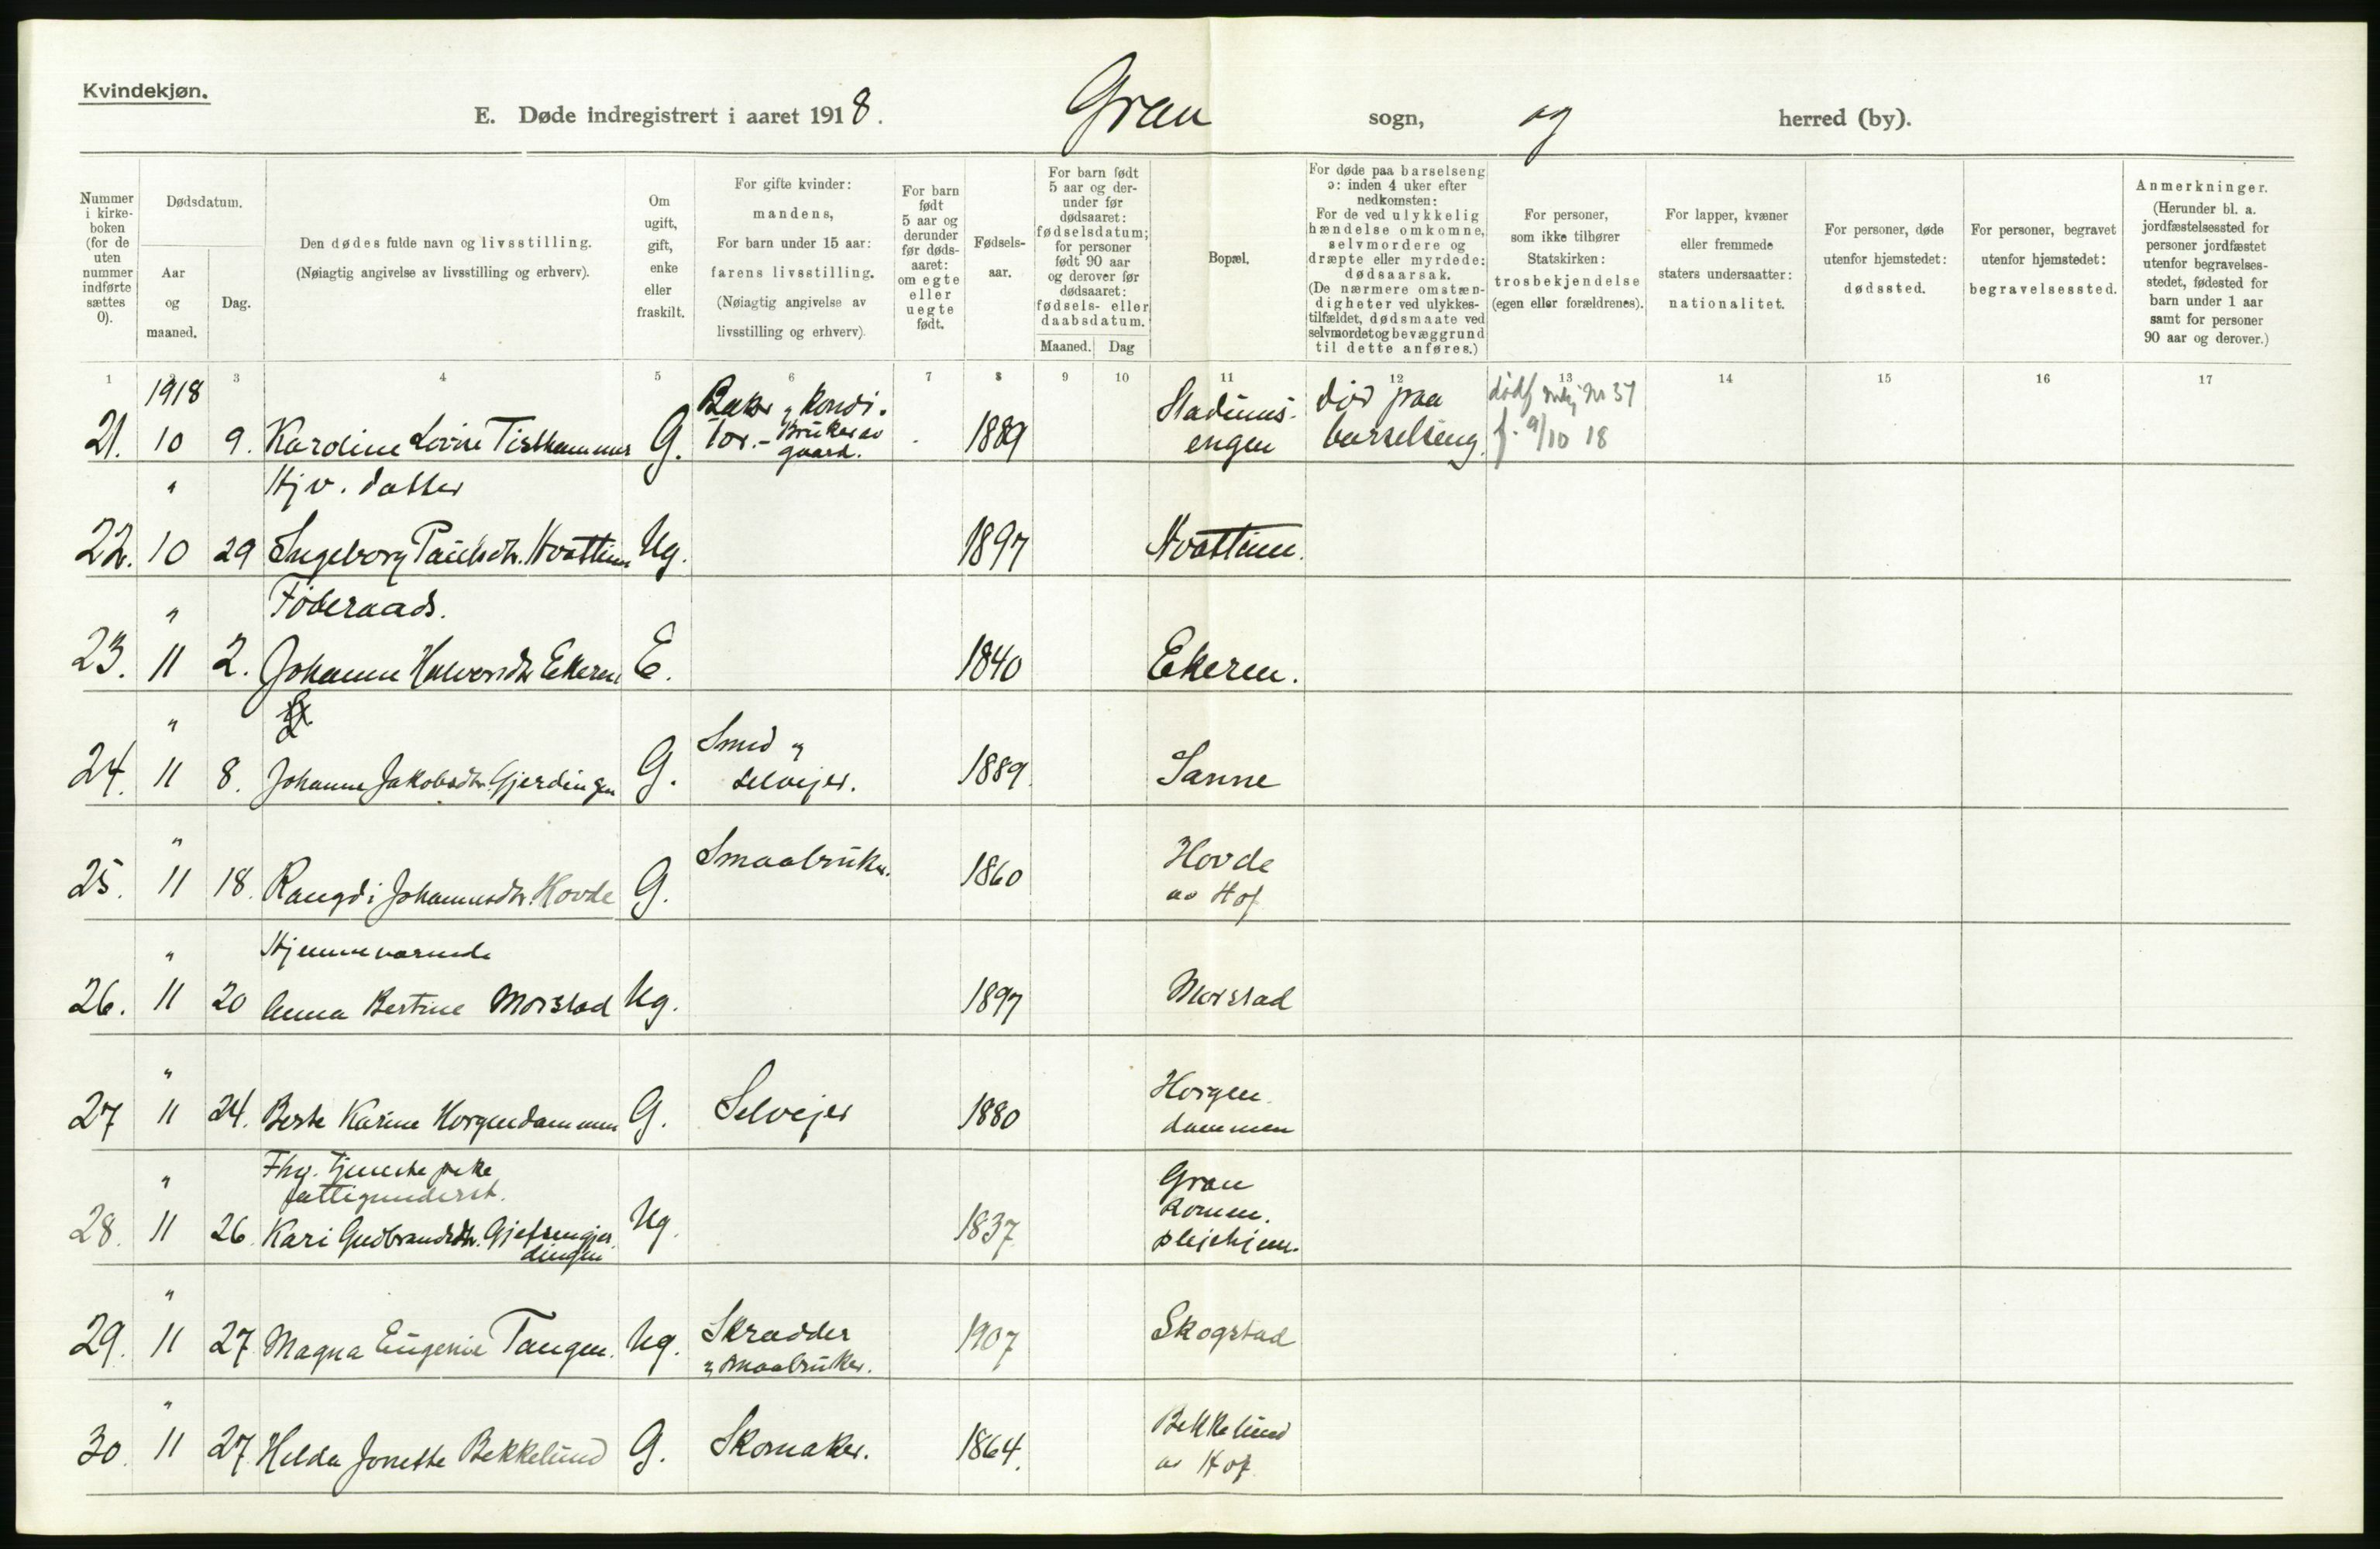 Kvindekjøn.
E. Døde indregistrert i aaret 1918. Gran sogn, og herred (by).
Nummer i kirke- boken (for de uten nummer indførte sættes 0).
Dødsdatum.
Aar og maaned.
Dag.
Den dødes fulde navn og livsstilling.
(Nøiagtig angivelse av livsstilling og erhverv).
Om ugift, gift, enke eller fraskilt.
For gifte kvinder: mandens,
For barn under 15 aar: farens livsstilling.
(Nøiagtig angivelse av livsstilling og erhverv).
For barn født 5 aar og derunder før døds- aaret: om egte eller uegte født.
Fødsels- aar.
For barn født 5 aar og der- under før dødsaaret: fødselsdatum; for personer født 90 aar og derover før dødsaaret: fødsels- eller daabsdatum.
Maaned. Dag
Bopæl.
For døde paa barselseng ɔ: inden 4 uker efter nedkomsten:
For de ved ulykkelig hændelse omkomne, selvmordere og dræpte eller myrdede: dødsaarsak.
(De nærmere omstæn- digheter ved ulykkes- tilfældet, dødsmaate ved selvmordet og bevæggrund til dette anføres.)
For personer, som ikke tilhører Statskirken: trosbekjendelse (egen eller forældrenes).
For lapper, kvæner eller fremmede staters undersaatter: nationalitet.
For personer, døde utenfor hjemstedet: dødssted.
For personer, begravet utenfor hjemstedet: begravelsessted.
Anmerkninger.
(Herunder bl. a. jordfæstelsessted for personer jordfæstet utenfor begravelses- stedet, fødested for barn under 1 aar samt for personer 90 aar og derover.)
1 2 3 4 5 6 7 8 9 10 11 12 13 14 15 16 17
1918 Baker og Kondi- død paa dødf Nr 37
21. 10 9. Karoline Lovise G. tor. - Bruker av gaard. 1889 Stadums- engen barselseng. f. 9/10 18
" Hjv. datter
22. 10 29 Ingeborg Paulsdtr. Hvattum Ug. 1897 Hvattum.
" Føderaads.
23. 11 2. Johanne Halvorsdtr Ekeren E. 1840 Ekeren.
" Smed og
24. 11 8. Johanne Jakobsdtr. Gjerdingen G. selveier. 1889. Sanne
" Smaabruker. Hovde
25. 11 18. Rangdi Johannesdtr. Hovde G. 1860 av Hof
" Hjemmeværende
26. 11 20 Anna Bertine Morstad Ug. 1897 Morstad
" Horgen
27 11 24. Berte Karine Horgendammen G. Selveier 1880 dammen
" Fhv. tjenestepike Gran
fattigunderst. Komm.
28. 11 26. Kari Gudbrandsdtr. Gjefsengjer- dingen Ug. 1837 pleiehjem.
"
29. 11 27 Magna Eugenie Tangen. Ug. Skrædder 1907 Skogstad
og smaabruker.
" Bekkelund
30. 11 27. Helda Jonette Bekkelund G. Skomaker. 1864. av Hof